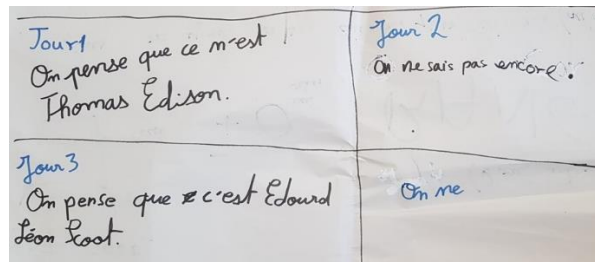 Jour1
On pense que ce n'est
Thomas Edison.
Jour 2
On ne sais pas encore.
Jour 3
On pense que c'est Edourd
Léon Scoot.
On ne